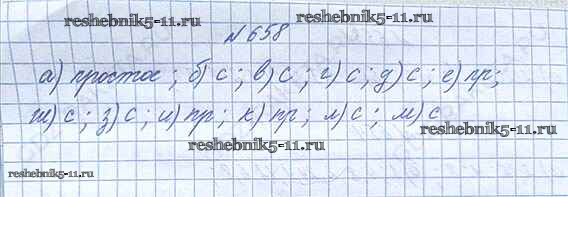 reshebnik5-11.ru
reshebnik5-11.ru
№ 658
а) простое; б) с; в) с; г) с; д) с; е) пр;
ж) с; з) с; и) пр; к) пр; л) с; м) с
reshebnik5-11.ru
reshebnik5-11.ru
reshebnik5-11.ru